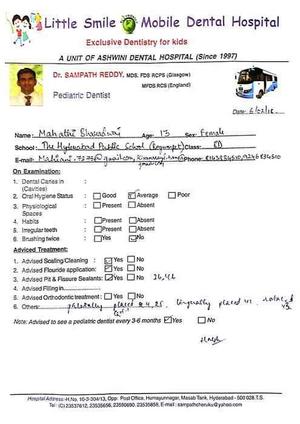 Little Smile Mobile Dental Hospital
Exclusive Dentistry for kids
A UNIT OF ASHWINI DENTAL HOSPITAL (Since 1997)
Dr. SAMPATH REDDY, MDS. FDS RCPS (Glasgow)
MFDS.RCS (England)
Pediatric Dentist
Date: 6/02/18
Name: Mahathi Age: 13 Sex: Female
School: The Hyderabad Public School (Begumpet) Class:
E-mail: Phone:
On Examination:
1. Dental Caries in :
(Cavities)
2. Oral Hygiene Status : Good Average Poor
3. Physiological : Present Absent
Spaces
4. Habits : Present Absent
5. Irregular teeth : Present Absent
6. Brushing twice : Yes No
Adviced Treatment:
1. Advised Scaling/Cleaning : Yes No
2. Advised Flouride application: Yes No
3. Advised Pit & Fissure Sealants: Yes No
4. Advised Filling in
5. Advised Orthodontic treatment : Yes No
6. Others: placed
Note: Advised to see a pediatric dentist every 3-6 months Yes No
Hospital Address:-H.No. 10-3-304/13, Opp. Post Office, Humayunnagar, Masab Tank, Hyderabad - 500 028.T.S.
Tel: (C) 23537612, 23535656, 23590690, 23535858, E-mail : sampathcheruku@yahoo.com